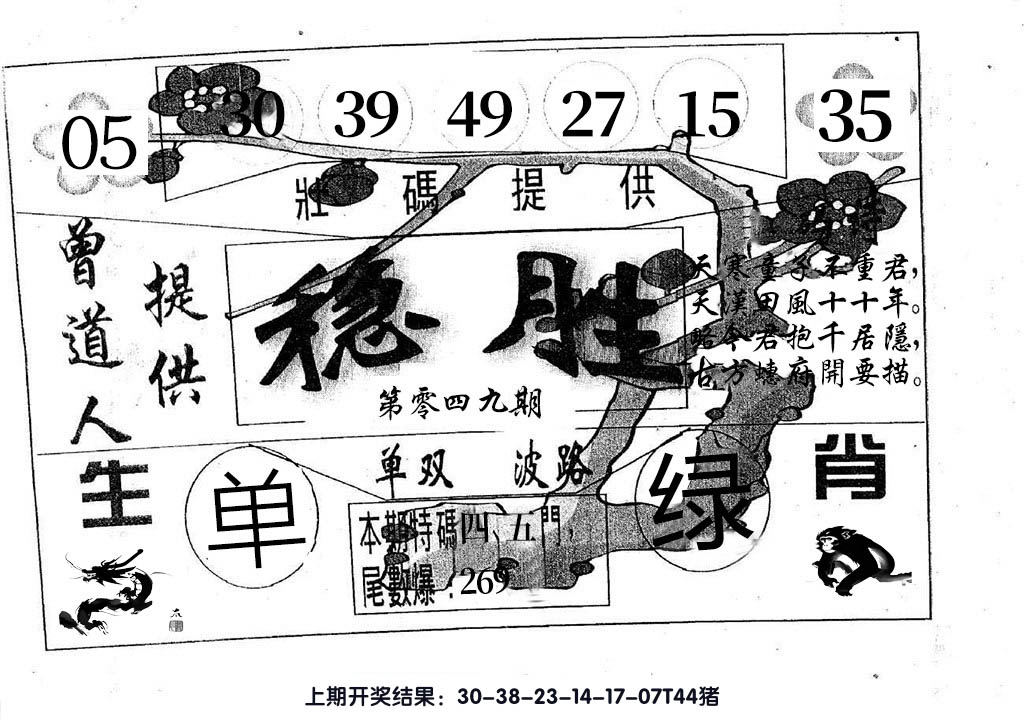 05 30 39 49 27 15 35
壯碼提供
曾道人
提供
稳胜
第零四九期
特
天寒童子不重君，
天漢田風十十年。
略令君抱千居隱，
古方蟪府開要描。
单双 波路
生 单 绿 肖
本期特碼四、五門，
尾數爆：269
上期开奖结果：30-38-23-14-17-07T44猪